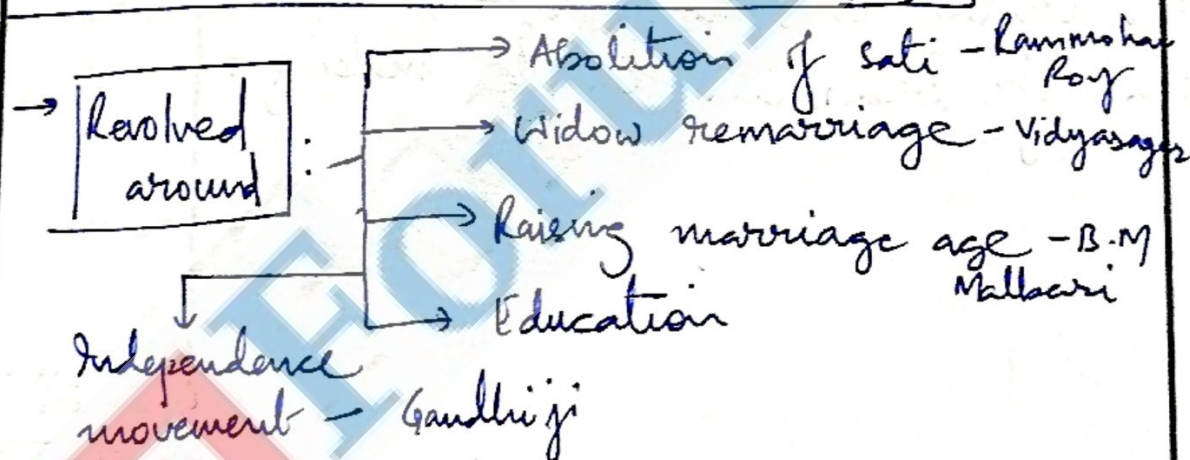 → Revolved around :
→ Abolition of Sati - Rammohan Roy
→ Widow remarriage - Vidyasagar
→ Raising marriage age - B.M Malbari
→ Education
Independence movement - Gandhiji
Forum